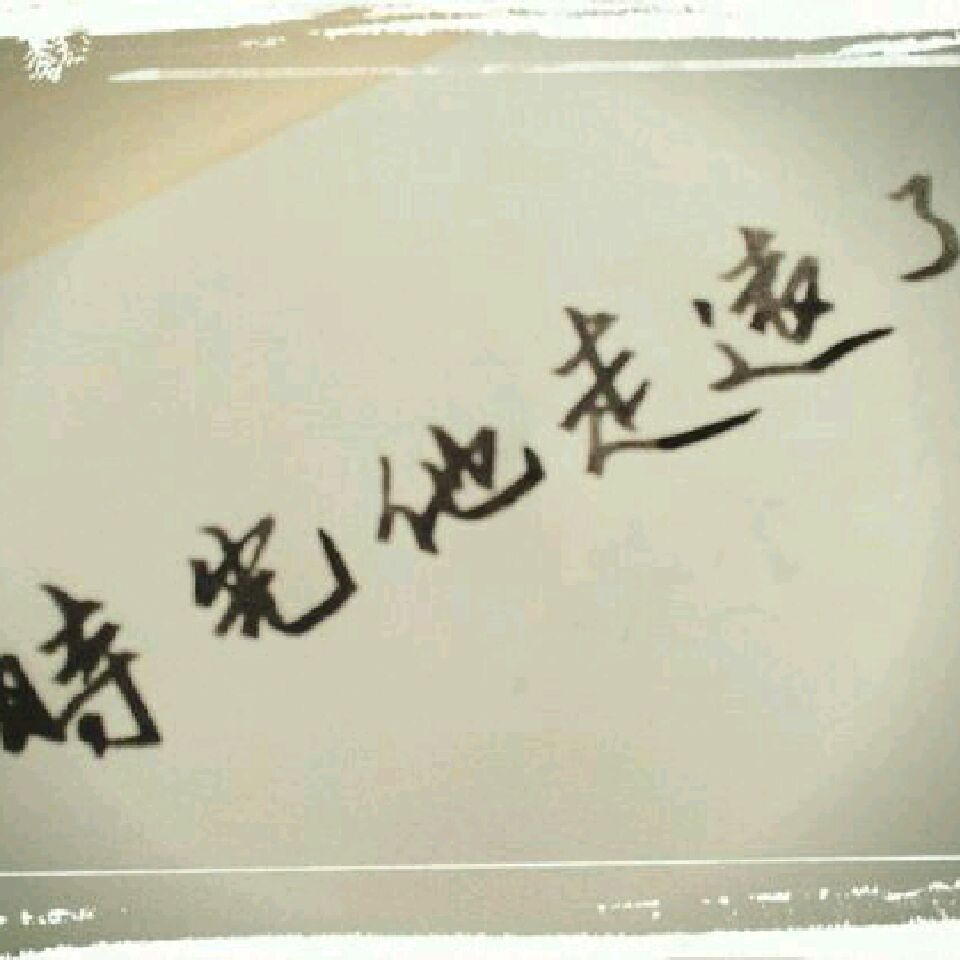 時光他走遠了